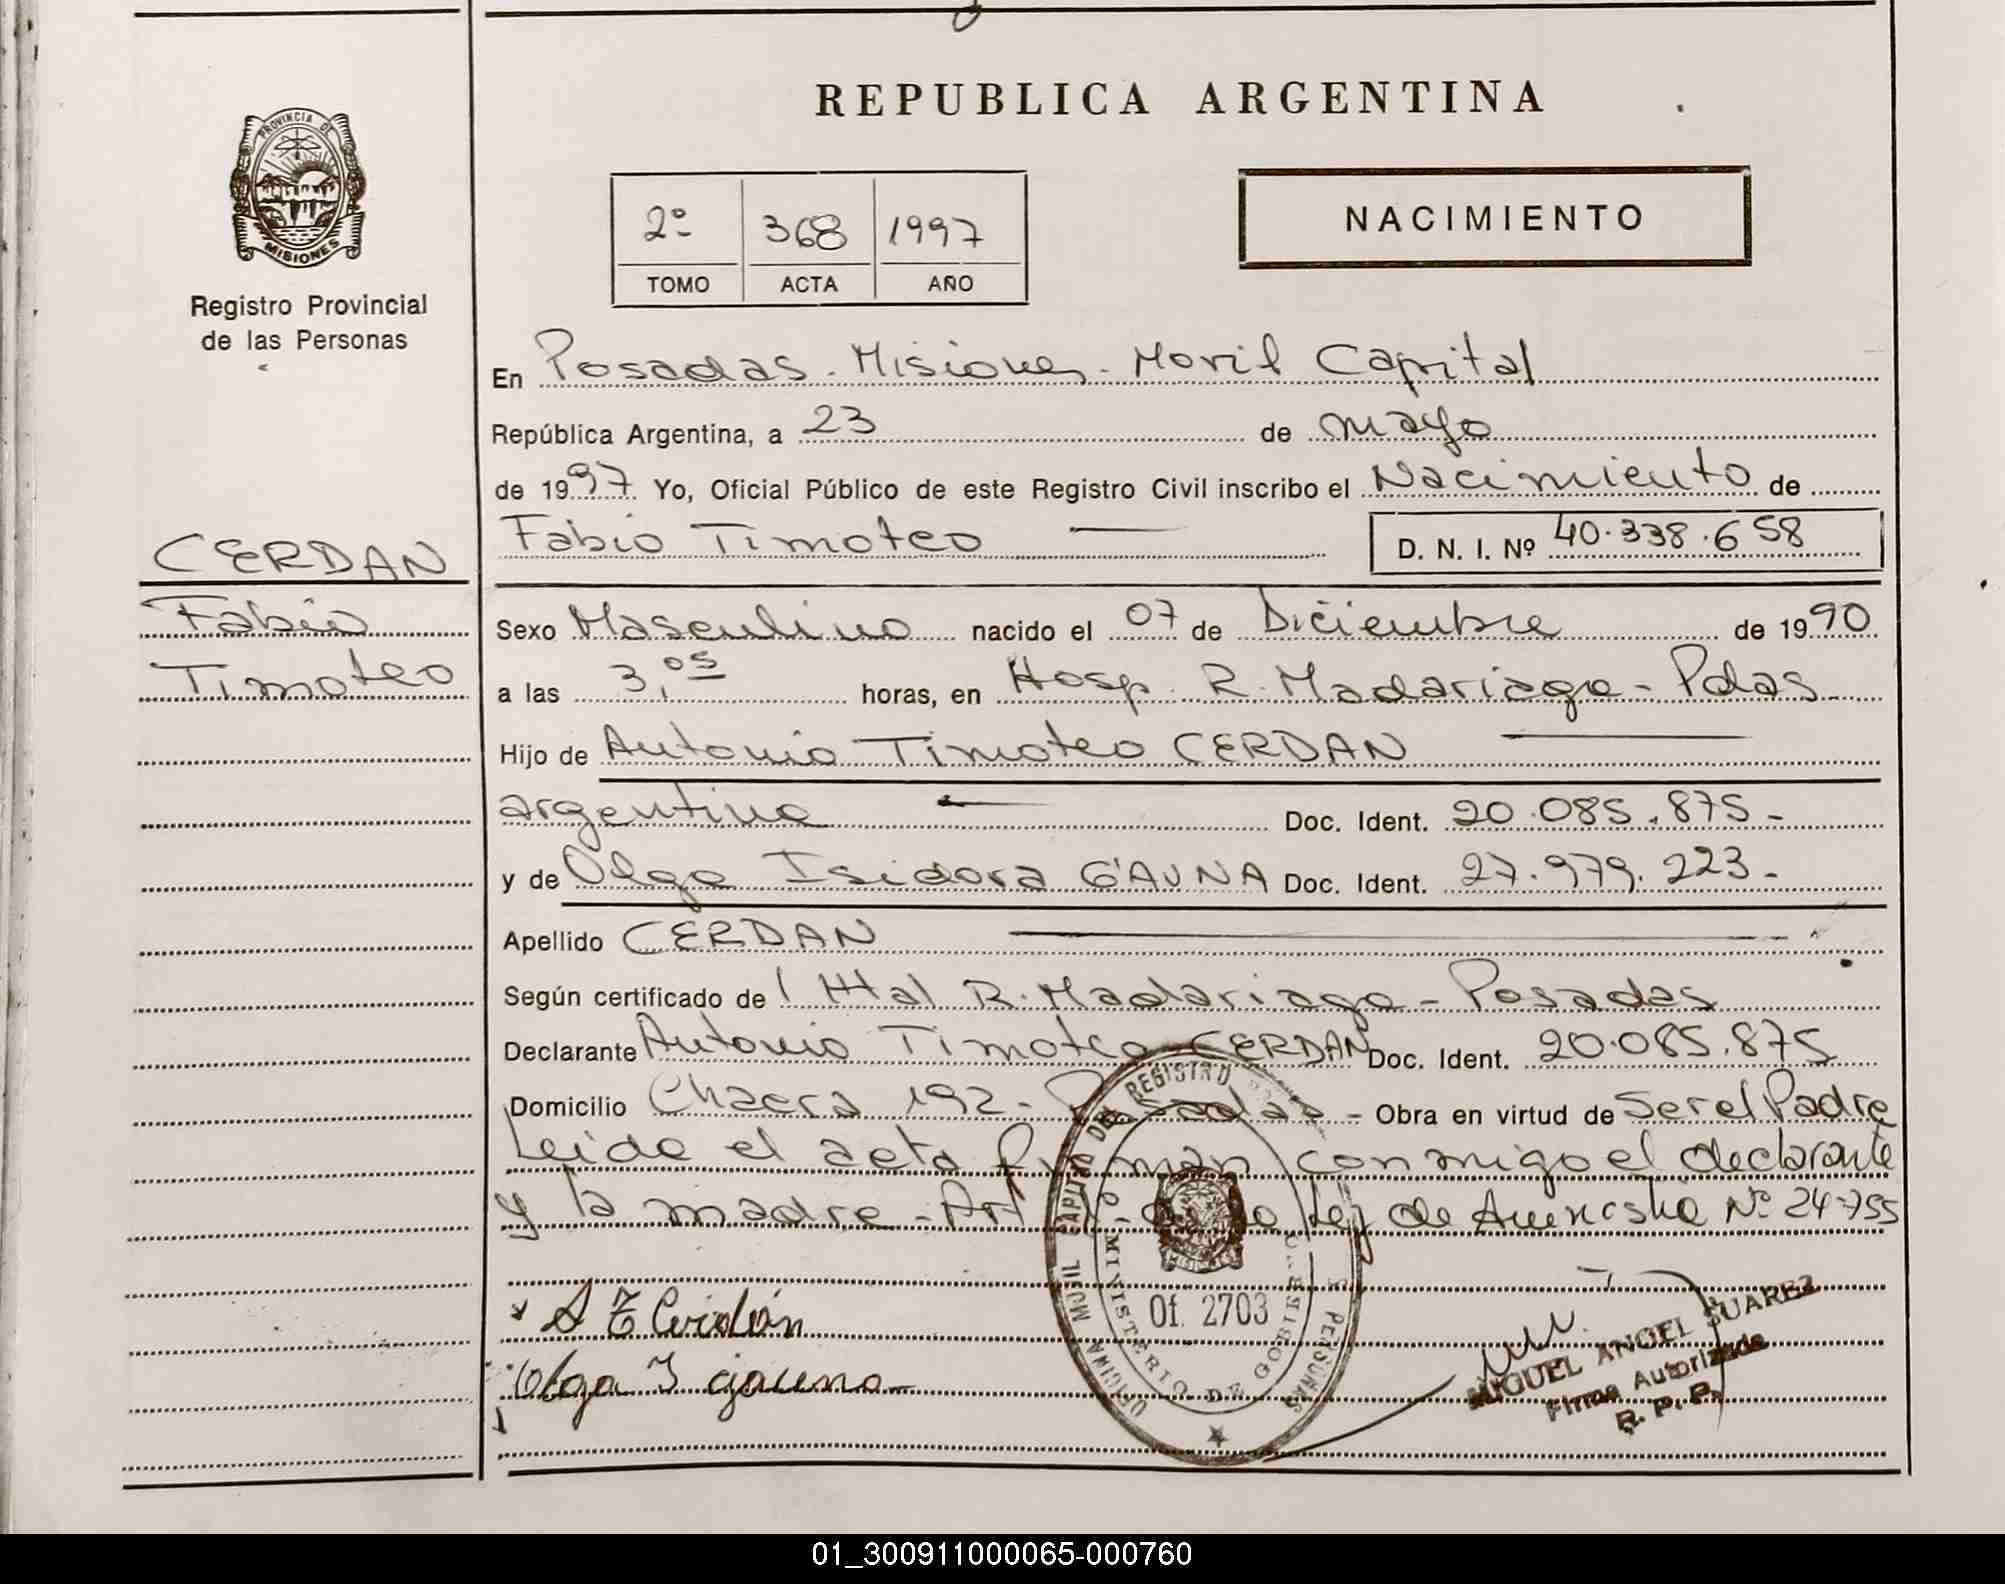 REPUBLICA ARGENTINA
PROVINCIA DE
MISIONES
Registro Provincial
de las Personas
2º 368 1997
TOMO ACTA AÑO
NACIMIENTO
En Posadas - Misiones - Movil Capital
República Argentina, a 23 de mayo
de 1997 Yo, Oficial Público de este Registro Civil inscribo el Nacimiento de
Fabio Timoteo D. N. I. Nº 40.338.658
CERDAN
Fabio
Timoteo
Sexo Masculino nacido el 07 de Diciembre de 1990
a las 3,05 horas, en Hosp. R. Madariaga - Pdas
Hijo de Antonio Timoteo CERDAN
argentina Doc. Ident. 20.085.875-
y de Olga Isidora GAUNA Doc. Ident. 27.979.223-
Apellido CERDAN
Según certificado del Htal R. Madariaga - Posadas
Declarante Antonio Timoteo CERDAN Doc. Ident. 20.085.875
Domicilio Chacra 192 - Posadas - Obra en virtud de Ser el Padre
Leida el acta firman conmigo el declarante
y la madre - Art Ley de Amnestia Nº 24755
A T Cerdán
Olga I gauna
OFICINA MOVIL CAPITAL DEL REGISTRO PERSONAS
MINISTERIO DE GOBIERNO
Of. 2703
MIGUEL ANGEL SUAREZ
Firma Autorizada
R. P. P.
01_300911000065-000760